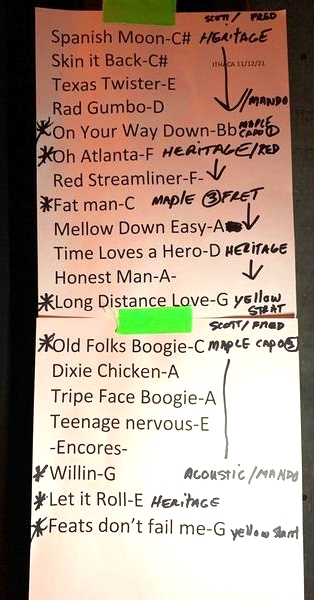 SCOTT/ FRED
Spanish Moon-C# HERITAGE
Skin it Back-C#
ITHACA 11/12/21
Texas Twister-E
Rad Gumbo-D /MANDO
*On Your Way Down-Bb MAPLE CAPO 1
*Oh Atlanta-F HERITAGE/RED
Red Streamliner-F-
*Fat man-C MAPLE 3 FRET
Mellow Down Easy-A
Time Loves a Hero-D HERITAGE
Honest Man-A-
*Long Distance Love-G yellow STRAT
SCOTT/FRED
*Old Folks Boogie-C MAPLE CAPO 3
Dixie Chicken-A
Tripe Face Boogie-A
Teenage nervous-E
-Encores-
*Willin-G ACOUSTIC/MANDO
*Let it Roll-E HERITAGE
*Feats don't fail me-G yellow Strat